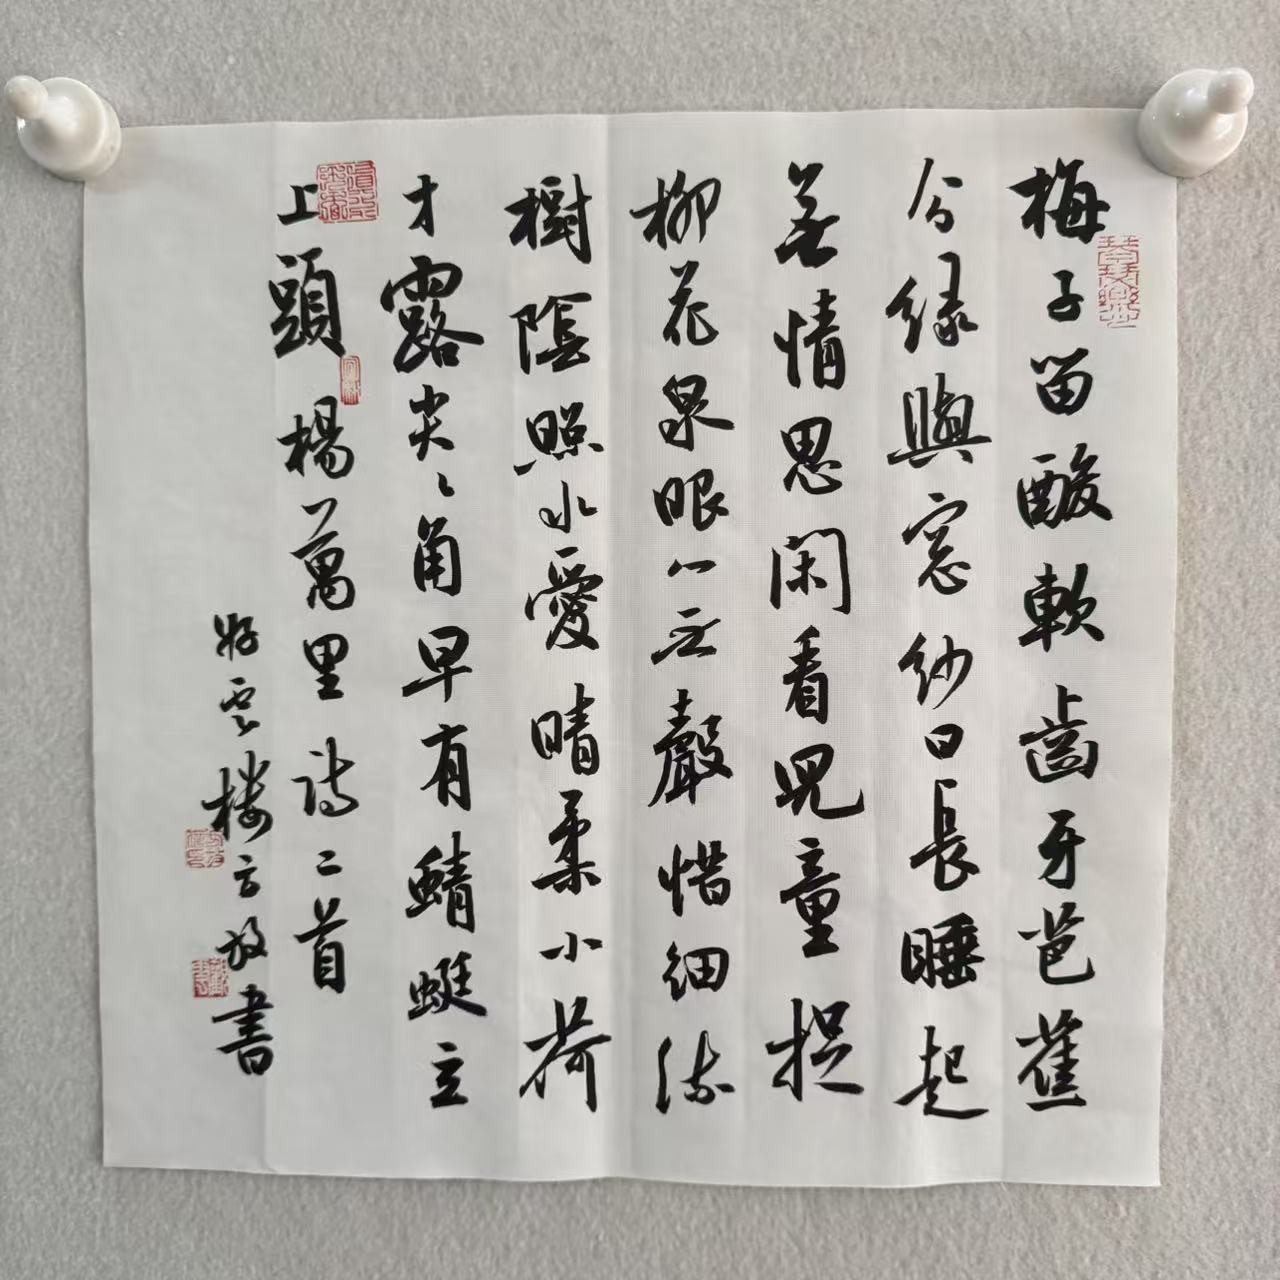 梅子留酸軟齒牙芭蕉
分緑與窓紗日長睡起
無情思閑看児童捉
柳花泉眼無聲惜細流
樹陰照水愛晴柔小荷
才露尖〻角早有蜻蜓立
上頭楊萬里詩二首
好雲樓方放書